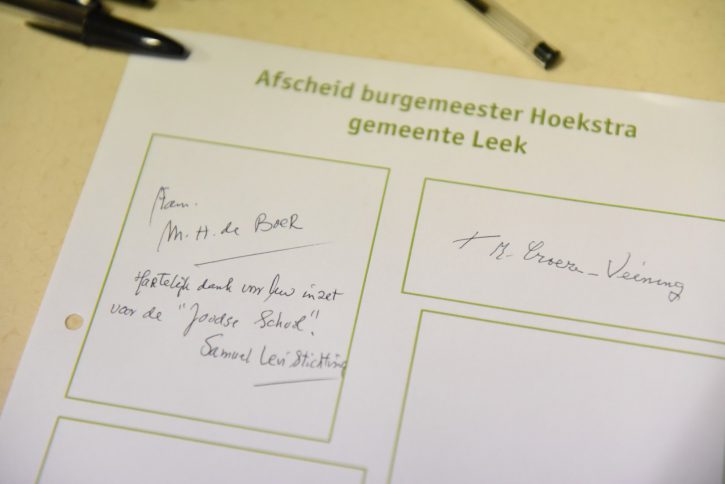 Afscheid burgemeester Hoekstra
gemeente Leek
Nam.
M.H. de BOER
Hartelijk dank voor Uw inzet
voor de "Joodse School".
Samuel Levi Stichting
M. - Veining